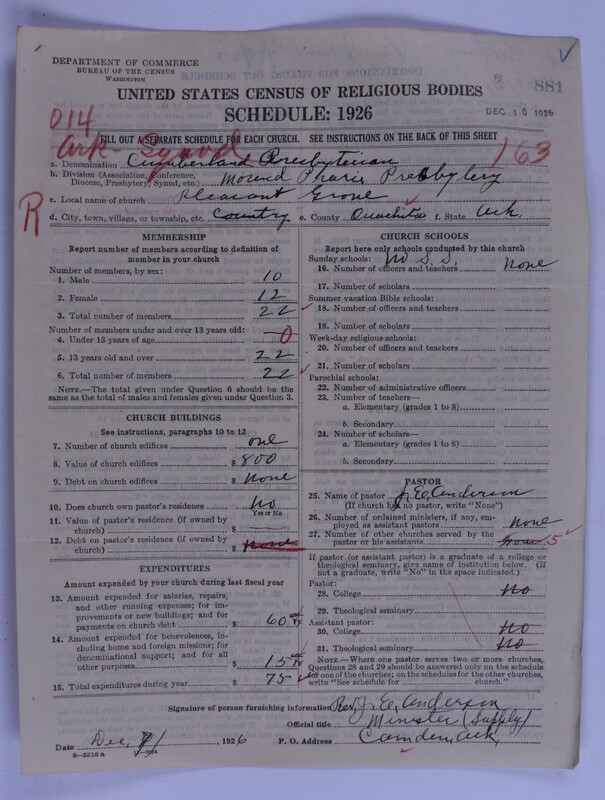 DEPARTMENT OF COMMERCE
BUREAU OF THE CENSUS
WASHINGTON
881
UNITED STATES CENSUS OF RELIGIOUS BODIES
SCHEDULE: 1926
DEC 10 1926
014
Ark-Synod
163
R
FILL OUT A SEPARATE SCHEDULE FOR EACH CHURCH. SEE INSTRUCTIONS ON THE BACK OF THIS SHEET
a. Denomination Cumberland Presbyterian
b. Division (Association, Conference, Diocese, Presbytery, Synod, etc.) Mound Prarie Presbytery
c. Local name of church Pleasant Grove
d. City, town, village, or township, etc. Country e. County Ouachita f. State Ark
MEMBERSHIP
Report number of members according to definition of
member in your church
Number of members, by sex:
1. Male 10
2. Female 12
3. Total number of members 22
Number of members under and over 13 years old:
4. Under 13 years of age 0
5. 13 years old and over 22
6. Total number of members 22
NOTE.—The total given under Question 6 should be
same as the total of males and females given under Question 3.
CHURCH BUILDINGS
See instructions, paragraphs 10 to 12
7. Number of church edifices one
8. Value of church edifices $ 800
9. Debt on church edifices $ None
10. Does church own pastor's residence? No
Yes or No
11. Value of pastor's residence (if owned by
church) $
12. Debt on pastor's residence (if owned by
church) $ None
EXPENDITURES
Amount expended by your church during last fiscal year
13. Amount expended for salaries, repairs,
and other running expenses; for im-
provements or new buildings; and for
payments on church debt $ 60
14. Amount expended for benevolences, in-
cluding home and foreign missions; for
denominational support; and for all
other purposes $ 15
15. Total expenditures during year $ 75
CHURCH SCHOOLS
Report here only schools conducted by this church
Sunday schools: No S.S.
16. Number of officers and teachers None
17. Number of scholars
Summer vacation Bible schools:
18. Number of officers and teachers
19. Number of scholars
Week-day religious schools:
20. Number of officers and teachers
21. Number of scholars
Parochial schools:
22. Number of administrative officers
23. Number of teachers—
a. Elementary (grades 1 to 8)
b. Secondary
24. Number of scholars—
a. Elementary (grades 1 to 8)
b. Secondary
PASTOR
25. Name of pastor J. E. Anderson
(If church has no pastor, write "None")
26. Number of ordained ministers, if any, em-
ployed as assistant pastors None
27. Number of other churches served by the
pastor or his assistants four 5
If pastor (or assistant pastor) is a graduate of a college or
theological seminary, give name of institution below. (If
not a graduate, write "No" in the space indicated.)
Pastor:
28. College No
29. Theological seminary
Assistant pastor:
30. College No
31. Theological seminary No
NOTE.—Where one pastor serves two or more churches,
Questions 28 and 29 should be answered only on the schedule
for one of the churches; on the schedules for the other churches,
write "See schedule for church."
Signature of person furnishing information Rev. J. E. Anderson
Official title Minister (Supply)
Date Dec, 1926 P. O. Address Camden, Ark,
8—5518a